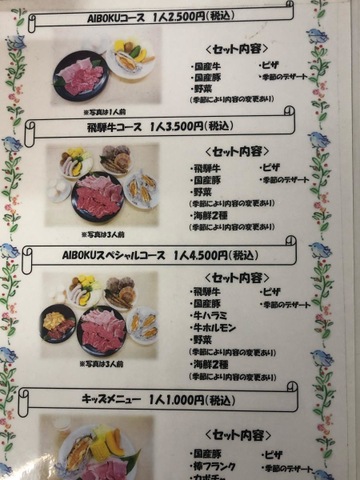 AIBOKUコース 1人2.500円(税込)
<セット内容>
・国産牛 ・ピザ
・国産豚 ・季節のデザート
・野菜
(季節により内容の変更あり)
※写真は1人前
飛騨牛コース 1人3.500円(税込)
<セット内容>
・飛騨牛 ・ピザ
・国産豚 ・季節のデザート
・野菜
(季節により内容の変更あり)
・海鮮2種
※写真は3人前
AIBOKUスペシャルコース 1人4.500円(税込)
<セット内容>
・飛騨牛 ・ピザ
・国産豚 ・季節のデザート
・牛ハラミ
・牛ホルモン
・野菜
(季節により内容の変更あり)
・海鮮2種
(季節により内容の変更あり)
※写真は3人前
キッズメニュー 1人1.000円(税込)
<セット内容>
・国産豚 ・ピザ
・棒フランク ・季節のデザート
・カボチャ